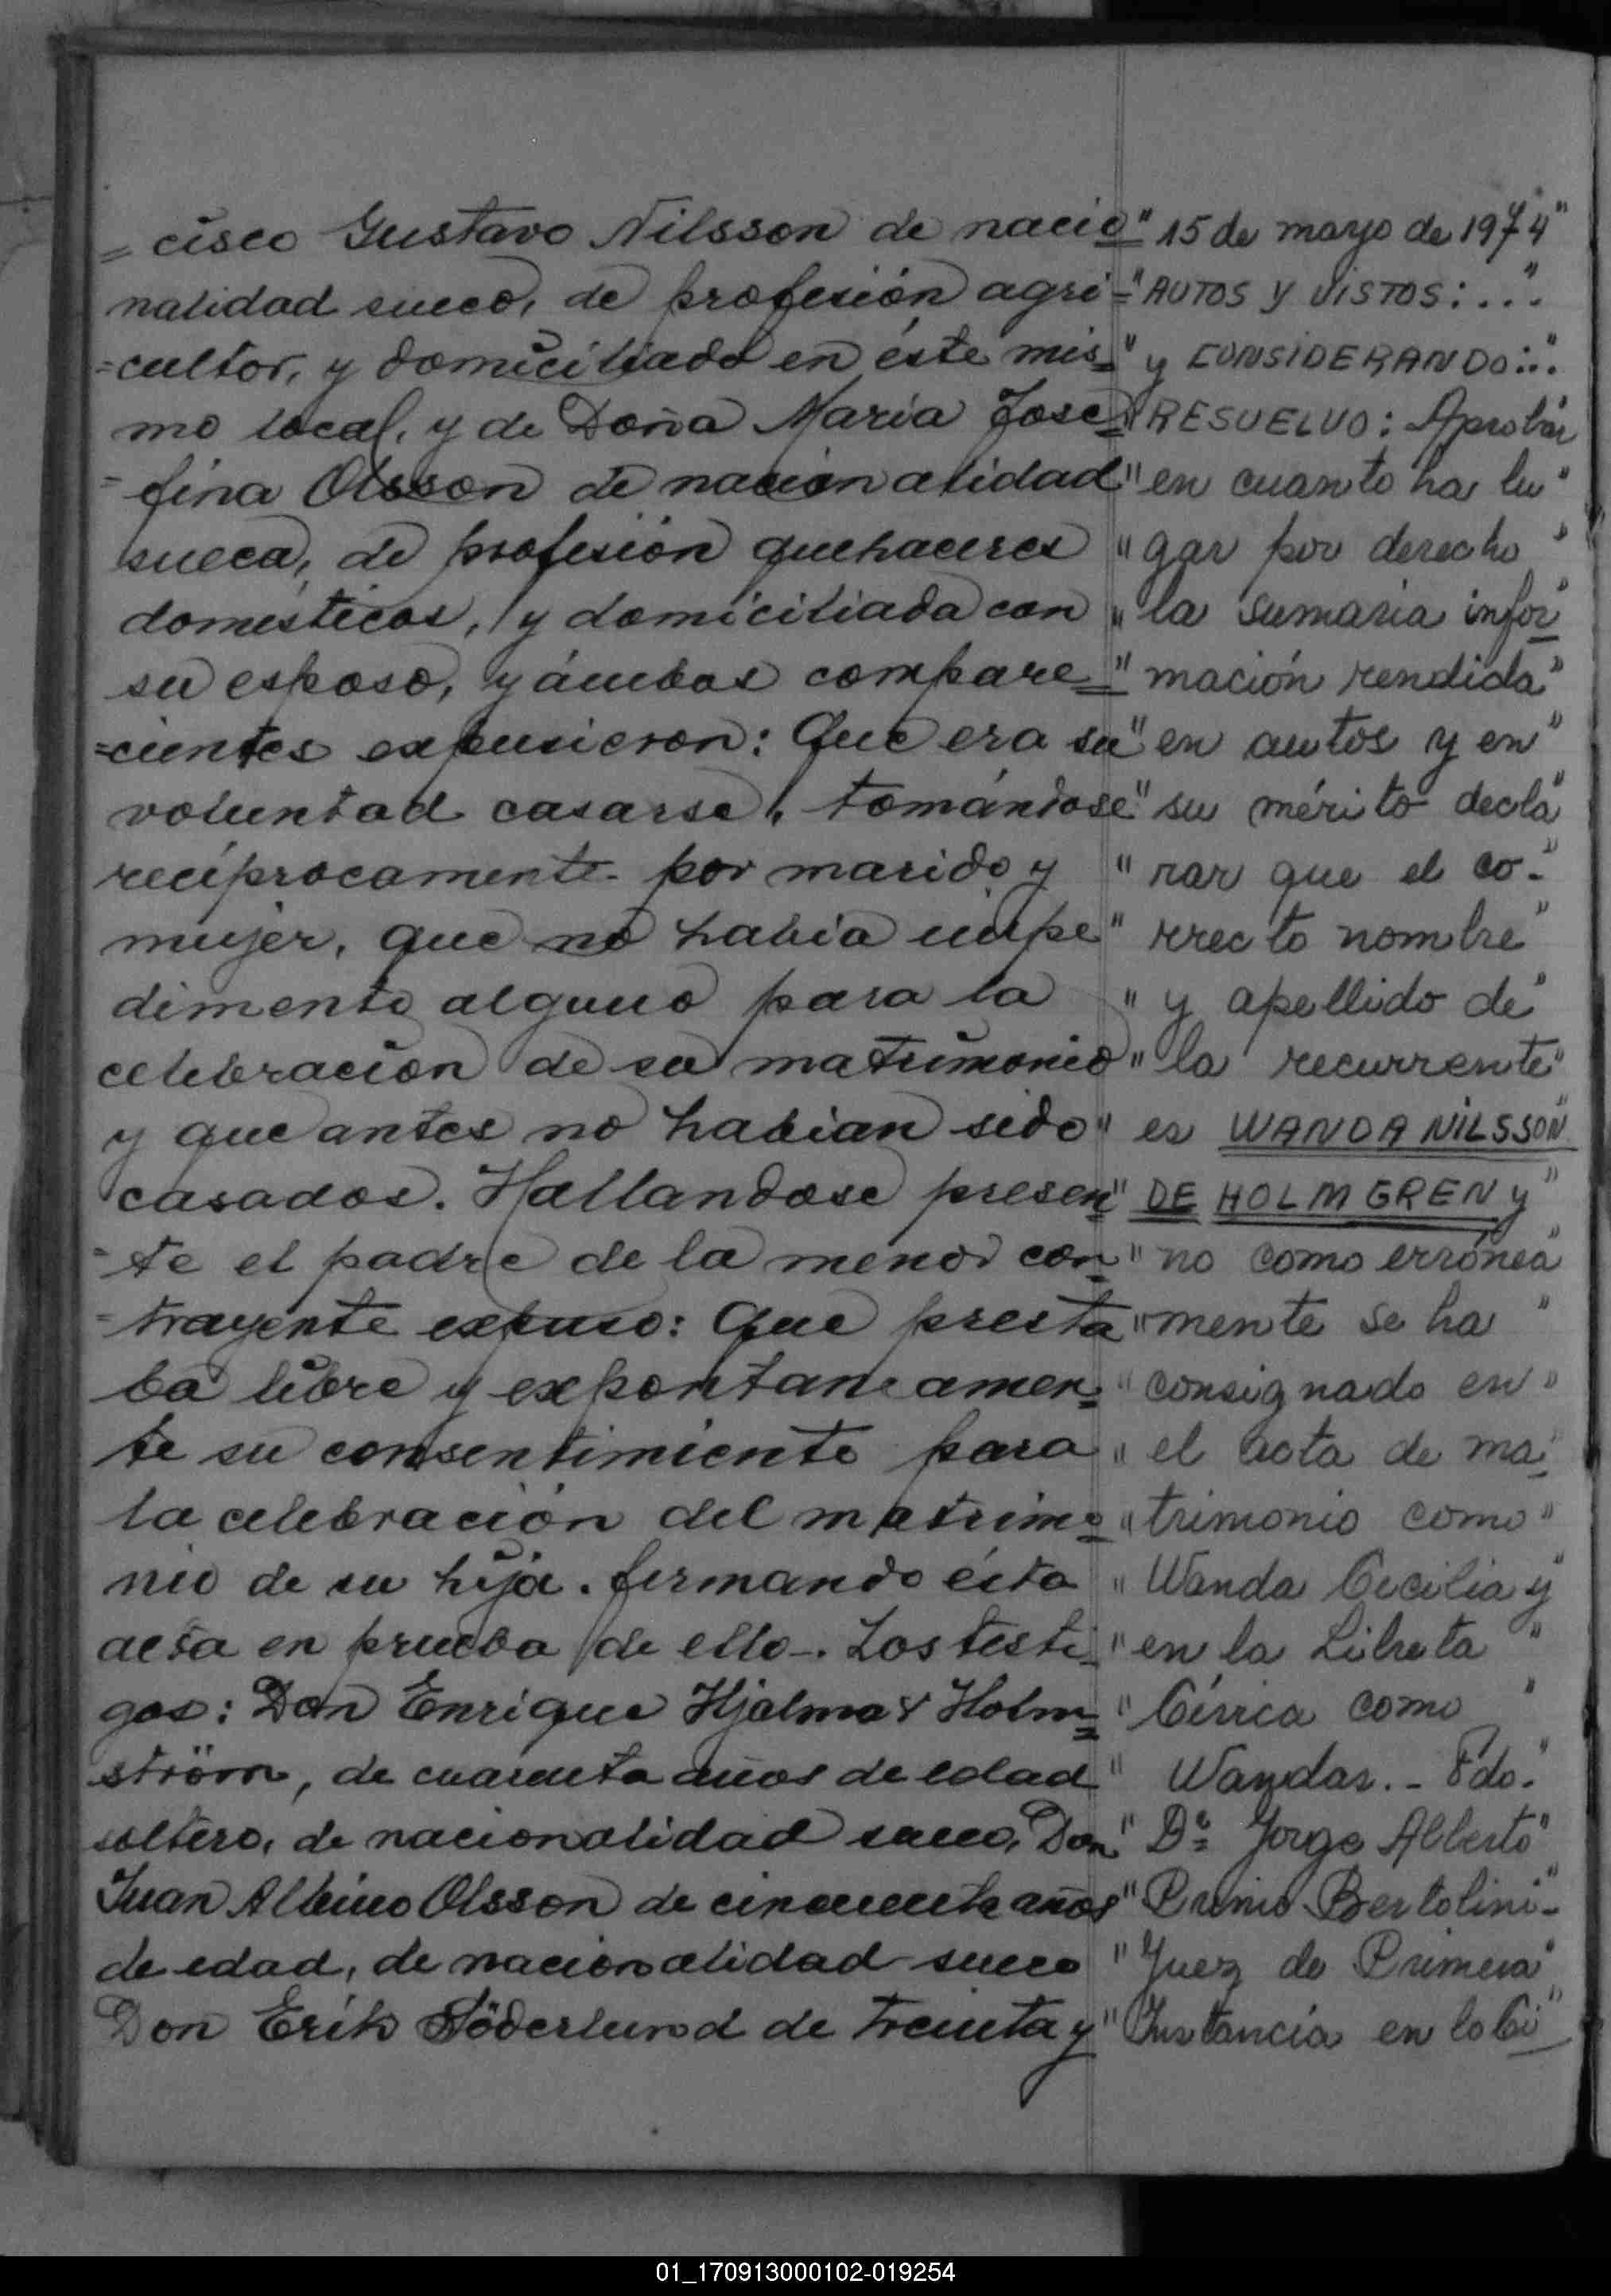 = cisco Gustavo Nilsson de nacio
nalidad sueco, de profesión agri=
=cultor, y domiciliado en éste mis=
mo local, y de Doña Maria Jose=
=fina Olsson de nacionalidad
sueca, de profesión quehaceres
domésticos, y domiciliada con
su esposo, y ámbos compare=
=cientes expusieron: Que era su
voluntad casarse, tomándose
recíprocamente por marido y
mujer, que no habia impe
dimento alguno para la
celebracion de su matrimonio
y que antes no habian sido
casados. Hallandose presen=
=te el padre de la menor con=
=trayente expuso: Que presta
ba libre y expontaneamen=
te su consentimiento para
la celebración del matrimo=
nio de su hija. firmando ésta
acta en prueba de ello-. Los testi=
gos: Don Enrique Hjalmar Holm=
ström, de cuarenta años de edad
soltero, de nacionalidad sueco, Don
Juan Albino Olsson de cincuenta años
de edad, de nacionalidad sueco
Don Erik Söderlund de treinta y
" 15 de mayo de 1974"
" AUTOS Y VISTOS: ..."
" y CONSIDERANDO:..."
RESUELVO: Aprobar
" en cuanto ha lu"
" gar por derecho "
" la sumaria infor"
" mación rendida"
" en autos y en "
" su mérito decla"
" rar que el co-"
" rrecto nombre "
" y apellido de"
" la recurrente"
" es WANDA NILSSON"
" DE HOLMGREN y "
" no como errónea"
" mente se ha "
" consignado en "
" el acta de ma"
" trimonio como "
" Wanda Cecilia y"
" en la Libreta "
" Cívica como "
" Wandas.- Fdo."
" Dr. Jorge Alberto"
" Primo Bertolini-"
" Juez de Primera"
" Instancia en lo Ci"
01_170913000102-019254